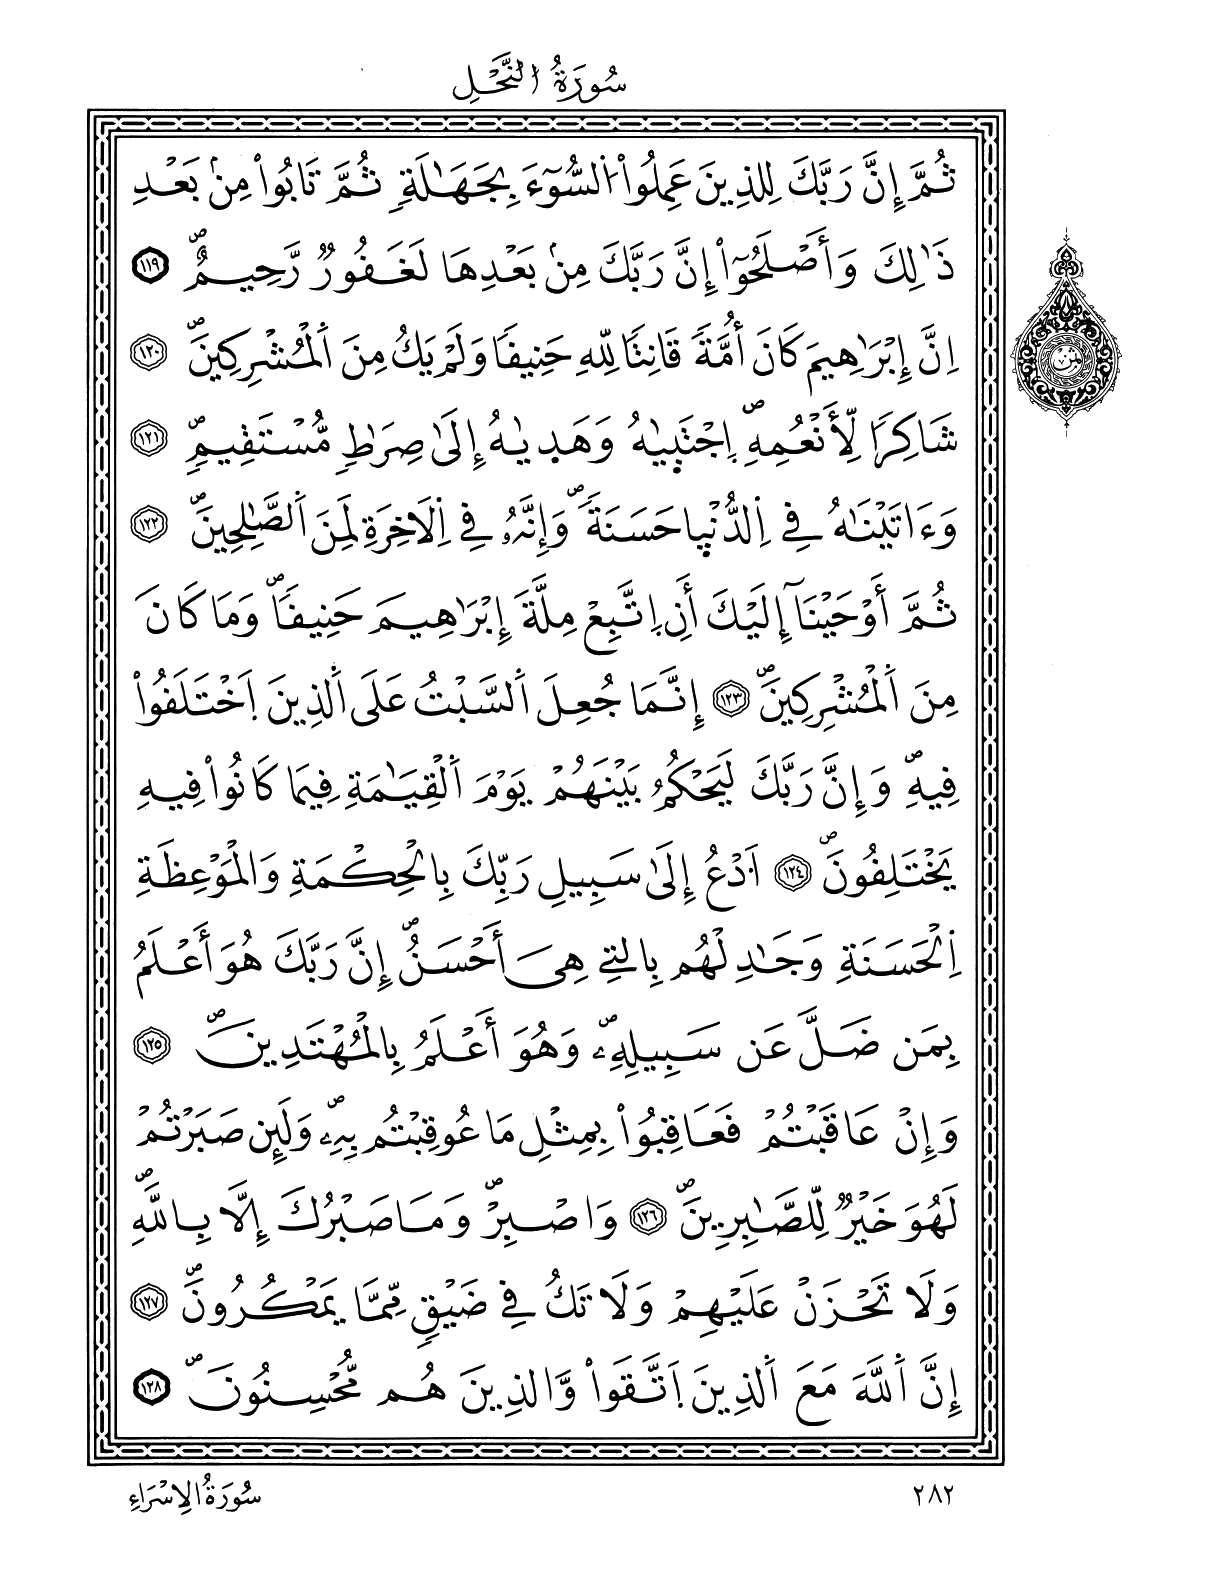 سُورَةُ النَّحْلِ
ثُمَّ إِنَّ رَبَّكَ لِلذِينَ عَمِلُواْ السُّوٓءَ بِجَهَٰلَةٖ ثُمَّ تَابُواْ مِنۢ بَعْدِ
ذَٰلِكَ وَأَصْلَحُوٓاْ إِنَّ رَبَّكَ مِنۢ بَعْدِهَا لَغَفُورٞ رَّحِيمٌۖ ١١٩
اِنَّ إِبْرَٰهِيمَ كَانَ أُمَّةٗ قَانِتٗا لِّلهِ حَنِيفٗا وَلَمْ يَكُ مِنَ اَلْمُشْرِكِينَۖ ١٢٠
شَاكِرٗا لِّأَنْعُمِهِۖ اِجْتَبٜيٰهُ وَهَدٜيٰهُ إِلَىٰ صِرَٰطٖ مُّسْتَقِيمٖۖ ١٢١
وَءَاتَيْنَٰهُ فِے اِلدُّنْيٜا حَسَنَةٗۖ وَإِنَّهُۥ فِے اِلَاخِرَةِ لَمِنَ اَلصَّٰلِحِينَۖ ١٢٢
ثُمَّ أَوْحَيْنَآ إِلَيْكَ أَنِ اِتَّبِعْ مِلَّةَ إِبْرَٰهِيمَ حَنِيفٗاۖ وَمَا كَانَ
مِنَ اَلْمُشْرِكِينَۖ ١٢٣ إِنَّمَا جُعِلَ اَلسَّبْتُ عَلَى اَلذِينَ اَخْتَلَفُواْ
فِيهِۖ وَإِنَّ رَبَّكَ لَيَحْكُمُ بَيْنَهُمْ يَوْمَ اَلْقِيَٰمَةِ فِيمَا كَانُواْ فِيهِ
يَخْتَلِفُونَۖ ١٢٤ اَدْعُ إِلَىٰ سَبِيلِ رَبِّكَ بِالْحِكْمَةِ وَالْمَوْعِظَةِ
اِلْحَسَنَةِ وَجَٰدِلْهُم بِالتِے هِيَ أَحْسَنُۖ إِنَّ رَبَّكَ هُوَ أَعْلَمُ
بِمَن ضَلَّ عَن سَبِيلِهِۦۖ وَهُوَ أَعْلَمُ بِالْمُهْتَدِينَۖ ١٢٥
وَإِنْ عَاقَبْتُمْ فَعَاقِبُواْ بِمِثْلِ مَا عُوقِبْتُم بِهِۦۖ وَلَئِن صَبَرْتُمْ
لَهُوَ خَيْرٞ لِّلصَّٰبِرِينَۖ ١٢٦ وَاصْبِرْۖ وَمَا صَبْرُكَ إِلَّا بِاللَّهِۖ
وَلَا تَحْزَنْ عَلَيْهِمْ وَلَا تَكُ فِے ضَيْقٖ مِّمَّا يَمْكُرُونَۖ ١٢٧
إِنَّ اَللَّهَ مَعَ اَلذِينَ اَتَّقَواْ وَّالذِينَ هُم مُّحْسِنُونَۖ ١٢٨
٢٨٢
سُورَةُ الِاسْرَاءِ